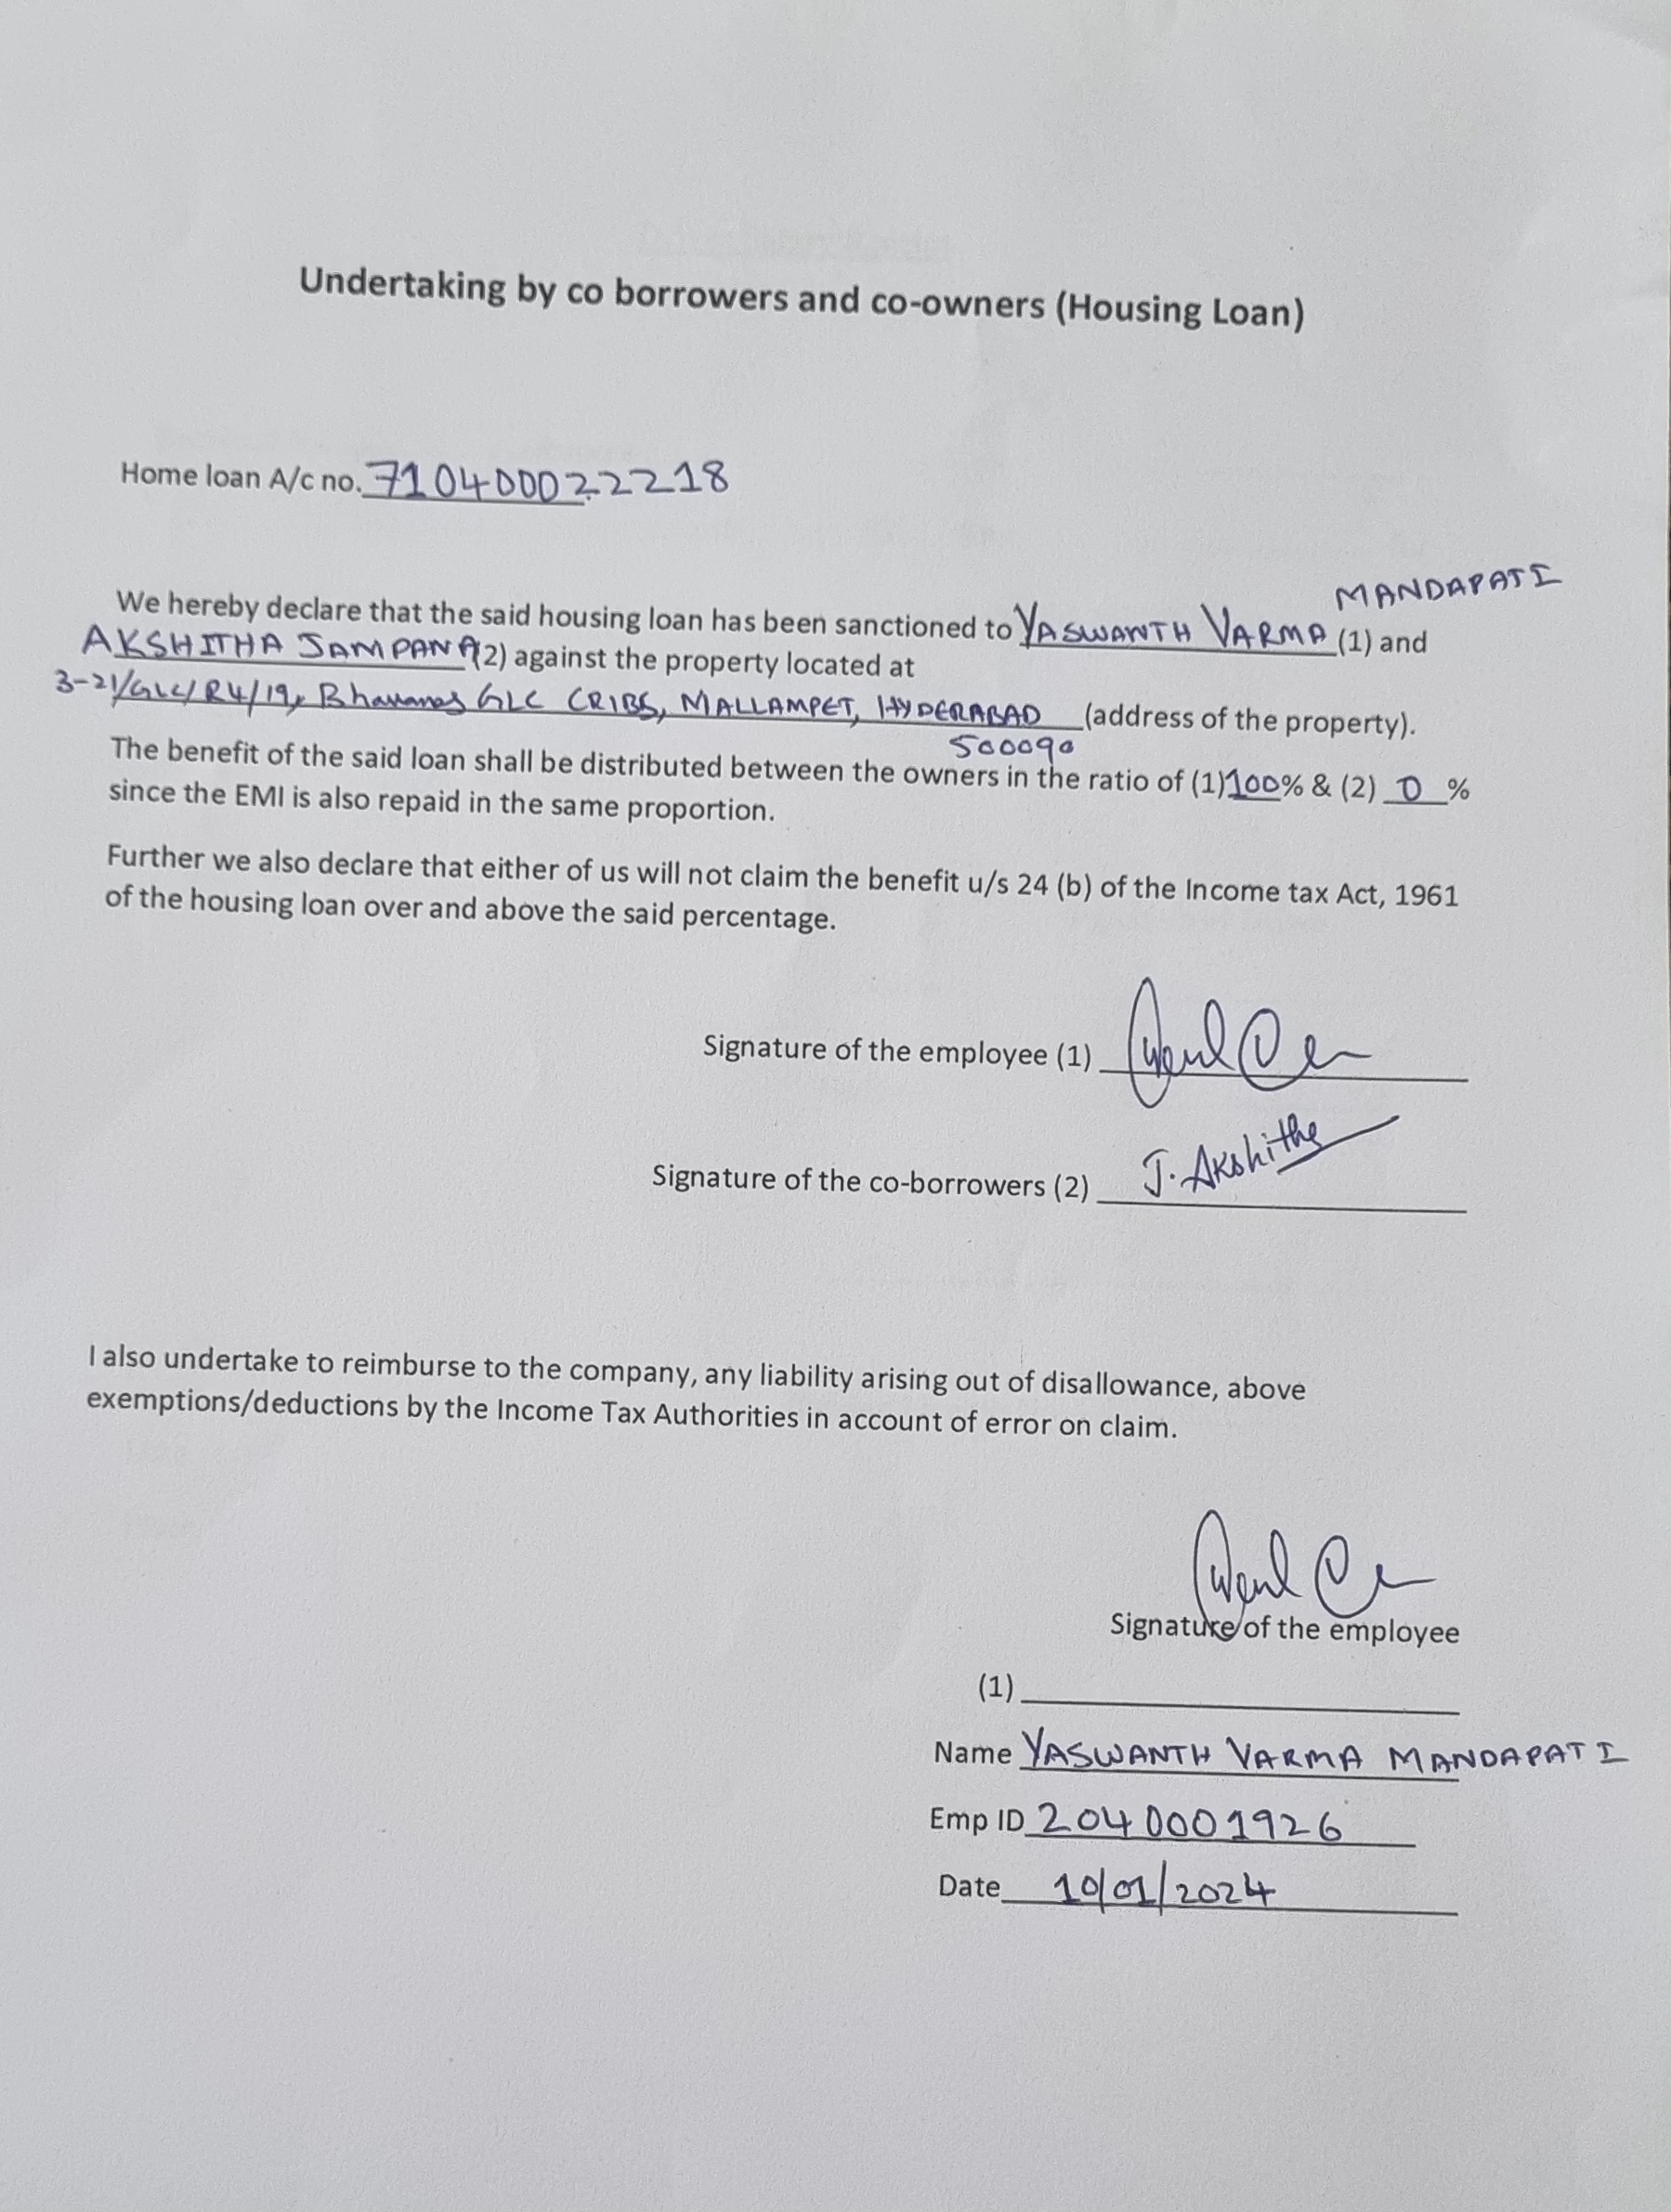 Undertaking by co borrowers and co-owners (Housing Loan)
Home loan A/c no. 710400022218
MANDAPATI
We hereby declare that the said housing loan has been sanctioned to YASWANTH VARMA (1) and
AKSHITHA JAMPANA (2) against the property located at
3-21/GLC/R4/19, Bhavanas GLC CRIBS, MALLAMPET, HYDERABAD (address of the property).
500090
The benefit of the said loan shall be distributed between the owners in the ratio of (1) 100% & (2) 0 %
since the EMI is also repaid in the same proportion.
Further we also declare that either of us will not claim the benefit u/s 24 (b) of the Income tax Act, 1961
of the housing loan over and above the said percentage.
Signature of the employee (1)
Signature of the co-borrowers (2) J. Akshitha
I also undertake to reimburse to the company, any liability arising out of disallowance, above
exemptions/deductions by the Income Tax Authorities in account of error on claim.
Signature of the employee
(1)
Name YASWANTH VARMA MANDAPATI
Emp ID 2040001926
Date 10/01/2024